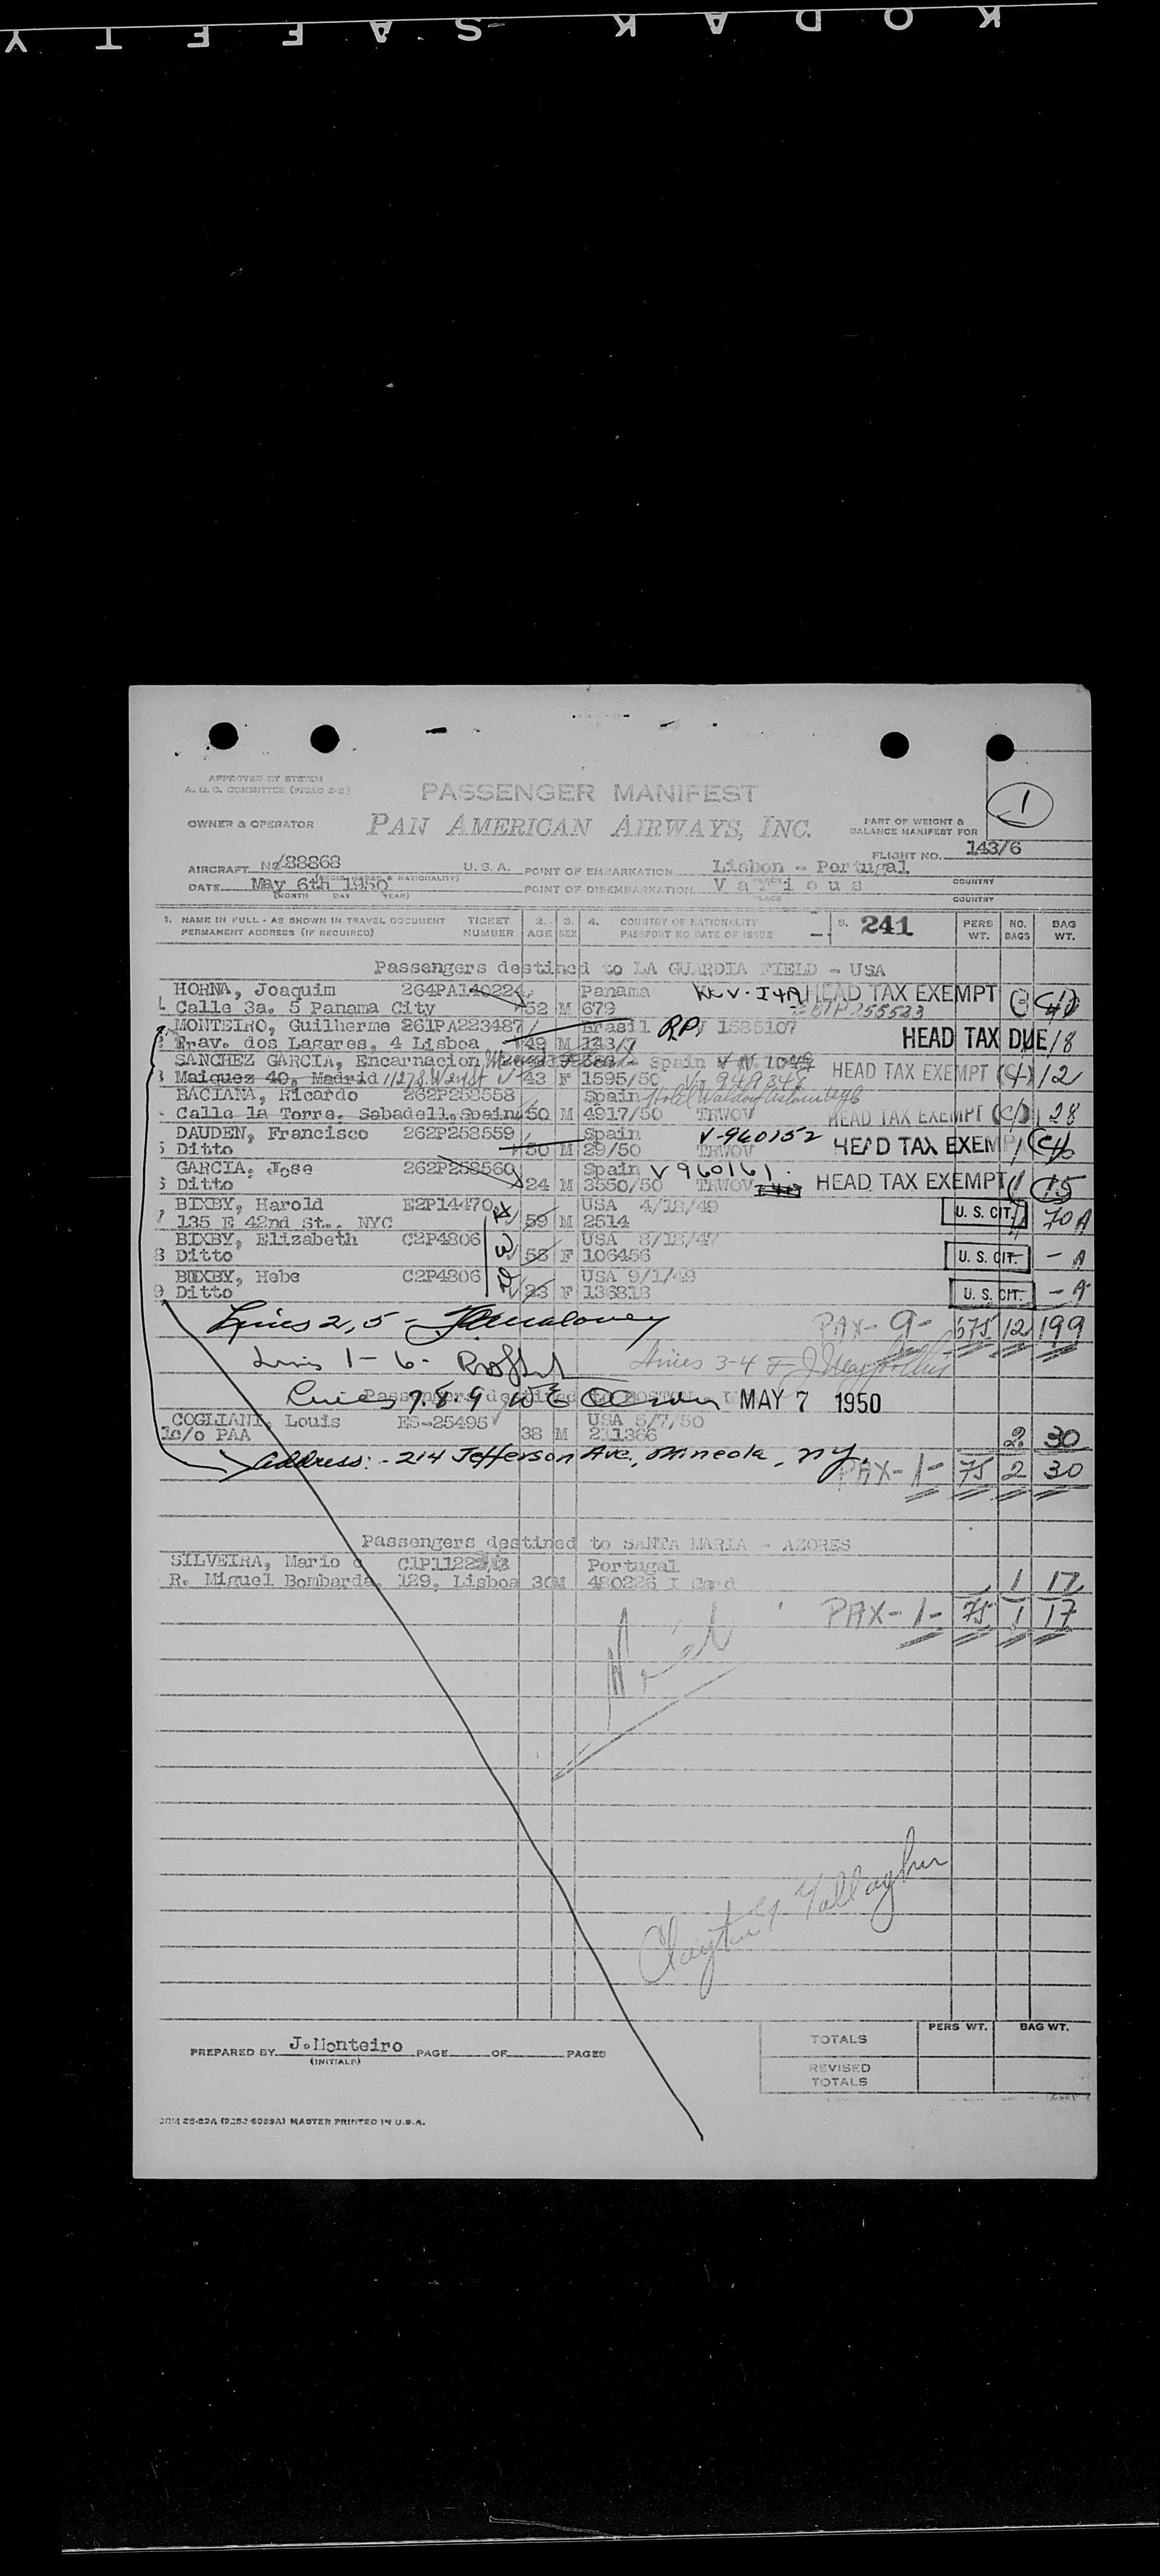 KODAK SAFETY
APPROVED BY SYSTEM
A. D. C. COMMITTEE (PICAO 2-2)
PASSENGER MANIFEST
1
OWNER & OPERATOR
PAN AMERICAN AIRWAYS, INC.
PART OF WEIGHT &
BALANCE MANIFEST FOR
FLIGHT NO. 143/6
AIRCRAFT NC/88868 U.S.A. POINT OF EMBARKATION Lisbon - Portugal
(REGIS. MARKS & NATIONALITY) COUNTRY
DATE May 6th 1950 POINT OF DISEMBARKATION Various
(MONTH DAY YEAR) PLACE COUNTRY
1. NAME IN FULL - AS SHOWN IN TRAVEL DOCUMENT TICKET 2. 3. 4. COUNTRY OF NATIONALITY 5. 241 PERS NO. BAG
PERMANENT ADDRESS (IF REQUIRED) NUMBER AGE SEX PASSPORT NO DATE OF ISSUE WT. BAGS WT.
Passengers destined to LA GUARDIA FIELD - USA
HORNA, Joaquim 264PA140224 Panama HEAD TAX EXEMPT
Calle 3a. 5 Panama City 52 M 679 255523
MONTEIRO, Guilherme 261PA223487 Brasil RP 1535107
Trav. dos Lagares, 4 Lisboa 49 M 143/7 HEAD TAX DUE 18
SANCHEZ GARCIA, Encarnacion Spain
3 Maiquez 40, Madrid 43 F 1595/50 V-949348 HEAD TAX EXEMPT 12
BACIANA, Ricardo 262P258558 Spain Hotel Waldorf
Calle la Torre. Sabadell.Spain 50 M 4917/50 TRWOV HEAD TAX EXEMPT 28
DAUDEN, Francisco 262P258559 Spain V-960152
5 Ditto 50 M 29/50 TRWOV HEAD TAX EXEMP
GARCIA, Jose 262P258560 Spain V960161
6 Ditto 24 M 3550/50 TRWOV HEAD TAX EXEMPT 15
BIXBY, Harold E2P14470 USA 4/18/49
7 135 E 42nd St., NYC 59 M 2514 U. S. CIT. 70 A
BIXBY, Elizabeth C2P4806 USA 8/18/47
8 Ditto 58 F 106456 U. S. CIT. - A
BIXBY, Hebe C2P4806 USA 9/1/49
9 Ditto 23 F 136818 U. S. CIT. - A
Lines 2,5 - PAX- 9- 675 12 199
Lines 1-6- Lines 3-4
Lines 7.8.9 Passengers destined to BOSTON - U MAY 7 1950
COGLIANI, Louis ES-25495 USA 5/7/50
c/o PAA 38 M 211366 2 30
Address: - 214 Jefferson Ave., Mineola, NY. PAX-1- 75 2 30
Passengers destined to SANTA MARIA - AZORES
SILVEIRA, Mario C1P1122 Portugal
R. Miguel Bombarda, 129, Lisboa 30 M 480226 I Card 1 17
PAX-1- 75 1 17
Clayton Gallagher
PERS WT. BAG WT.
TOTALS
PREPARED BY J.Monteiro PAGE OF PAGES
(INITIALS)
REVISED
TOTALS
MASTER PRINTED IN U.S.A.